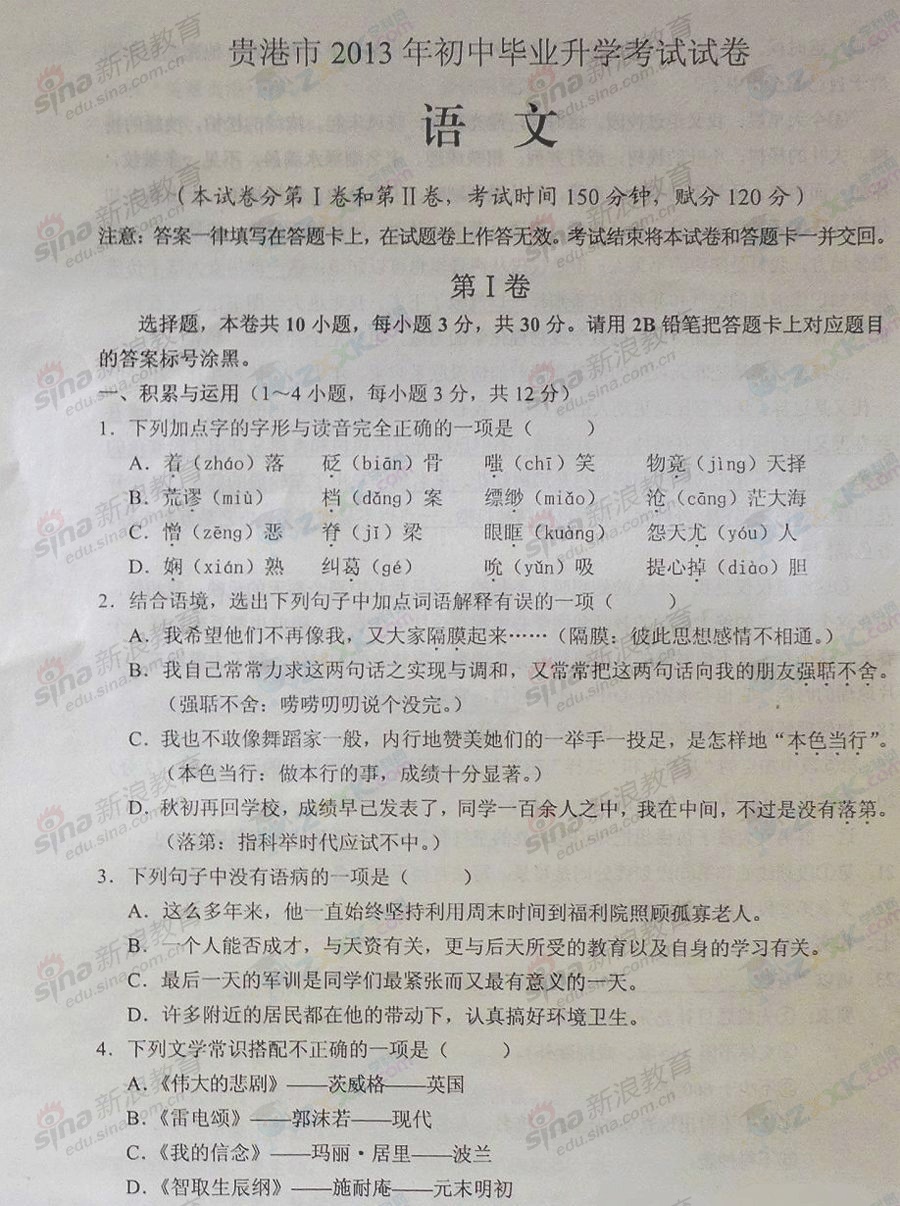 贵港市 2013 年初中毕业升学考试试卷
语 文
（本试卷分第Ⅰ卷和第Ⅱ卷，考试时间 150 分钟，赋分 120 分）
注意：答案一律填写在答题卡上，在试题卷上作答无效。考试结束将本试卷和答题卡一并交回。
第Ⅰ卷
选择题，本卷共 10 小题，每小题 3 分，共 30 分。请用 2B 铅笔把答题卡上对应题目
的答案标号涂黑。
一、积累与运用（1～4 小题，每小题 3 分，共 12 分）
1．下列加点字的字形与读音完全正确的一项是（　　）
A．着（zháo）落　砭（biān）骨　嗤（chī）笑　物竟（jìng）天择
B．荒谬（miù）　档（dǎng）案　缥缈（miǎo）　沧（cāng）茫大海
C．憎（zēng）恶　脊（jǐ）梁　眼眶（kuàng）　怨天尤（yóu）人
D．娴（xián）熟　纠葛（gé）　吮（yǔn）吸　提心掉（diào）胆
2．结合语境，选出下列句子中加点词语解释有误的一项（　　）
A．我希望他们不再像我，又大家隔膜起来……（隔膜：彼此思想感情不相通。）
B．我自己常常力求这两句话之实现与调和，又常常把这两句话向我的朋友强聒不舍。
（强聒不舍：唠唠叨叨说个没完。）
C．我也不敢像舞蹈家一般，内行地赞美她们的一举手一投足，是怎样地“本色当行”。
（本色当行：做本行的事，成绩十分显著。）
D．秋初再回学校，成绩早已发表了，同学一百余人之中，我在中间，不过是没有落第。
（落第：指科举时代应试不中。）
3．下列句子中没有语病的一项是（　　）
A．这么多年来，他一直始终坚持利用周末时间到福利院照顾孤寡老人。
B．一个人能否成才，与天资有关，更与后天所受的教育以及自身的学习有关。
C．最后一天的军训是同学们最紧张而又最有意义的一天。
D．许多附近的居民都在他的带动下，认真搞好环境卫生。
4．下列文学常识搭配不正确的一项是（　　）
A．《伟大的悲剧》——茨威格——英国
B．《雷电颂》——郭沫若——现代
C．《我的信念》——玛丽·居里——波兰
D．《智取生辰纲》——施耐庵——元末明初
sina 新浪教育
edu.sina.com.cn